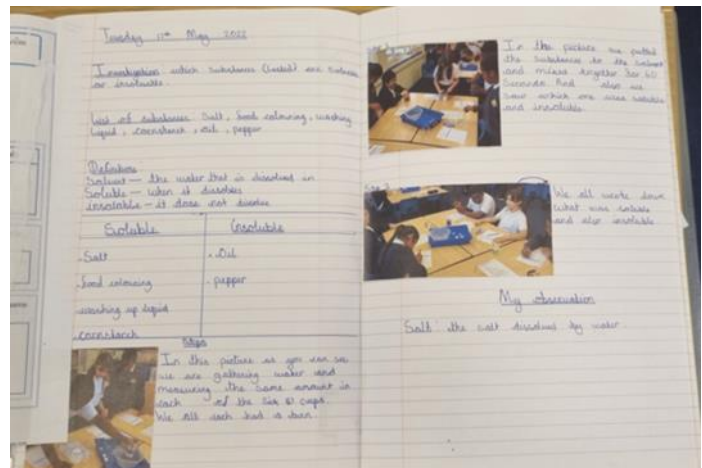 Tuesday 17th May 2022
Investigation which substances (listed) are soluble
or insoluble.
List of substances Salt, food colouring, washing
liquid, cornstarch, oil, pepper
Definition
Solvent - the water that is dissolved in
Soluble - when it dissolves
insoluble - it does not dissolve
Soluble Insoluble
. Salt . Oil
. food colouring . pepper
. washing up liquid
. cornstarch
Steps
In this picture as you can see
we are gathering water and
measuring the same amount in
each of the six cups.
We all each had a turn.
In the picture we putted
the substances to the solvent
and mixed together for 60
seconds. And also we
saw which one was soluble
and insoluble.
We all wrote down
what was soluble
and also insoluble
My observation
Salt: the salt dissolved by water